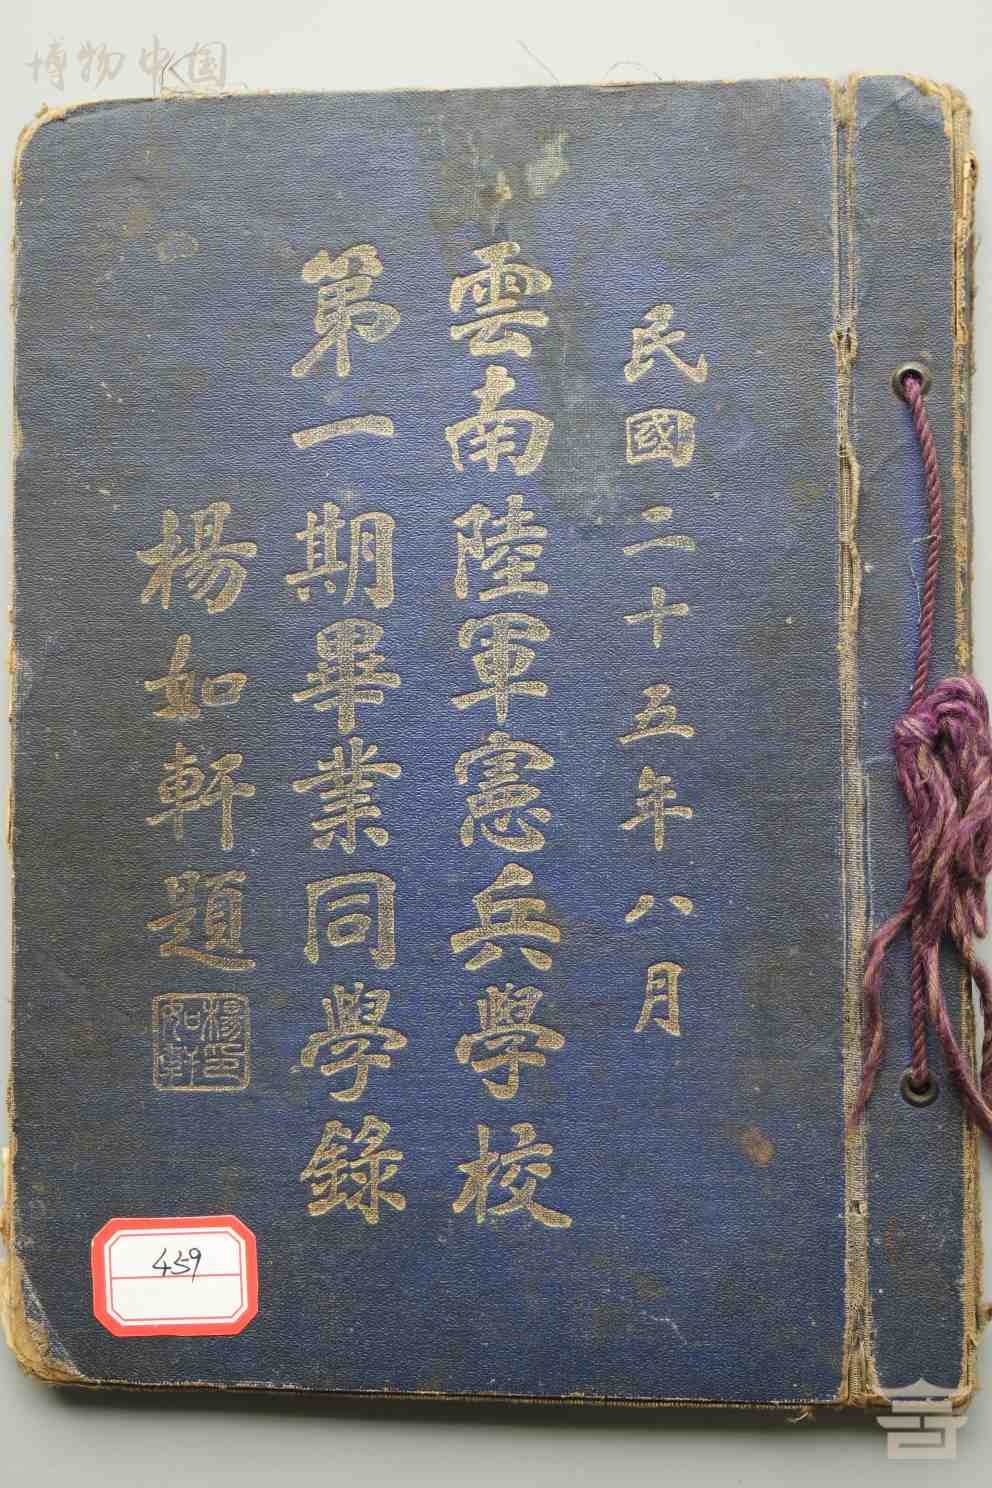 博物中国
民國二十五年八月
雲南陸軍憲兵學校
第一期畢業同學錄
楊如軒題
楊印如軒
459